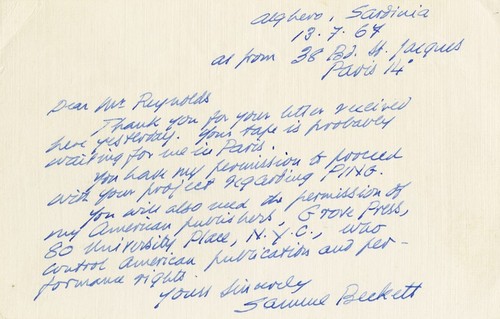 Alghero, Sardinia
13.7.67
as from 38 Bd. St. Jacques
Paris 14e
Dear Mr Reynolds
Thank you for your letter received
here yesterday. Your tape is probably
waiting for me in Paris.
You have my permission to proceed
with your project regarding PING.
You will also need the permission of
my American publishers, Grove Press,
80 University Place, N.Y.C., who
control American publication and per-
formance rights.
Yours sincerely
Samuel Beckett